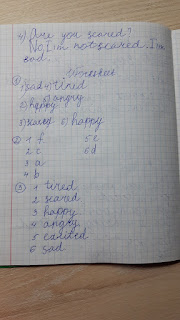 4) Are you scared?
No, I'm not scared. I'm
sad.
Worksheet
① 1) sad 4) tired
2) happy 5) angry
3) scared 6) happy
② 1 f 5 e
2 c 6 d
3 a
4 b
③ 1 tired
2 scared
3 happy
4 angry
5 excited
6 sad